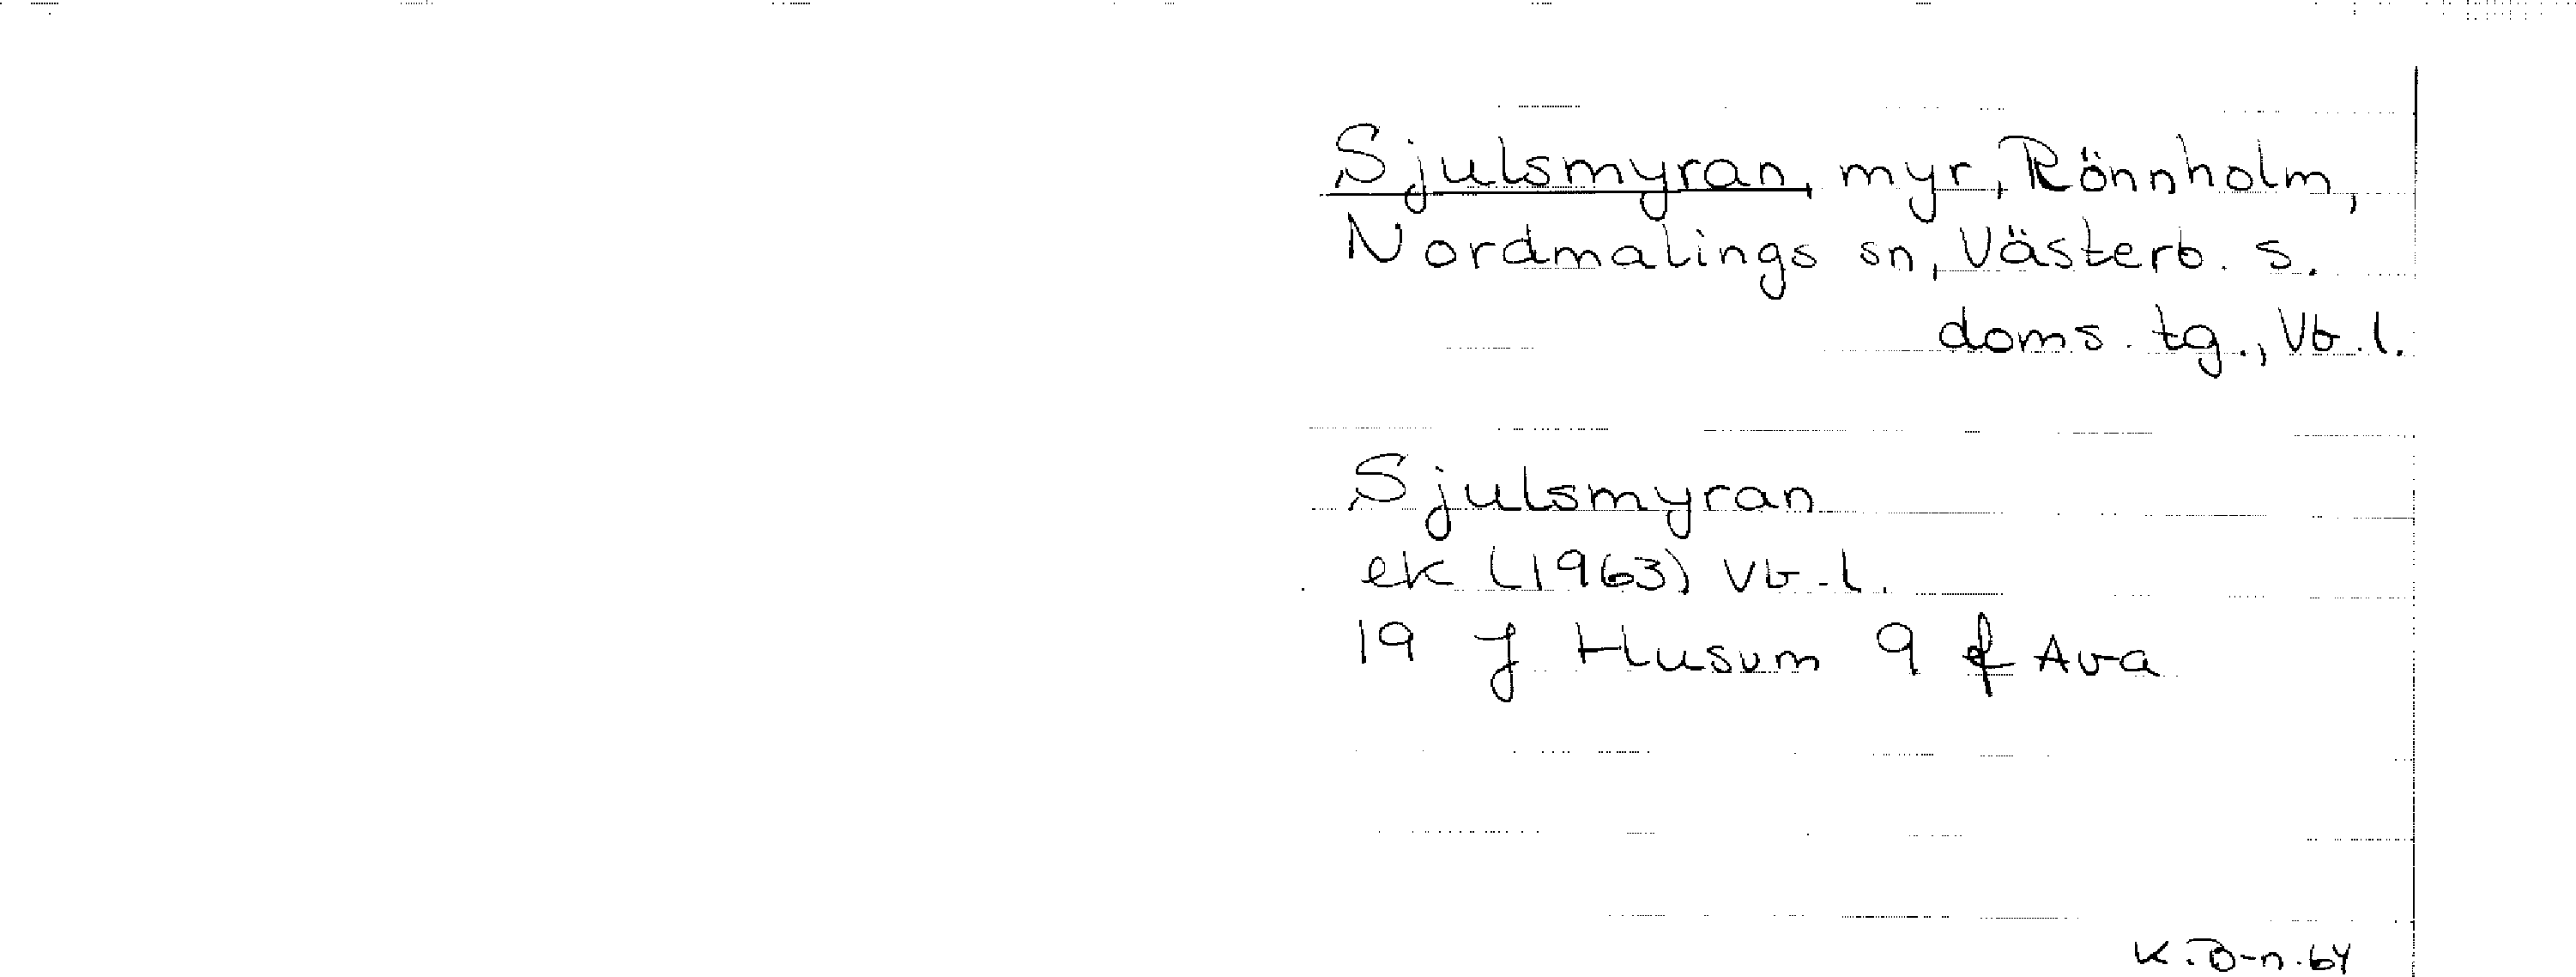 Sjulsmyran, myr, Rönnholm,
Nordmalings sn, Västerb. s.
doms. tg., Vb. l.
Sjulsmyran
ek (1963) Vb. l.
19 J Husum 9 f Ava
K. B-n. 64